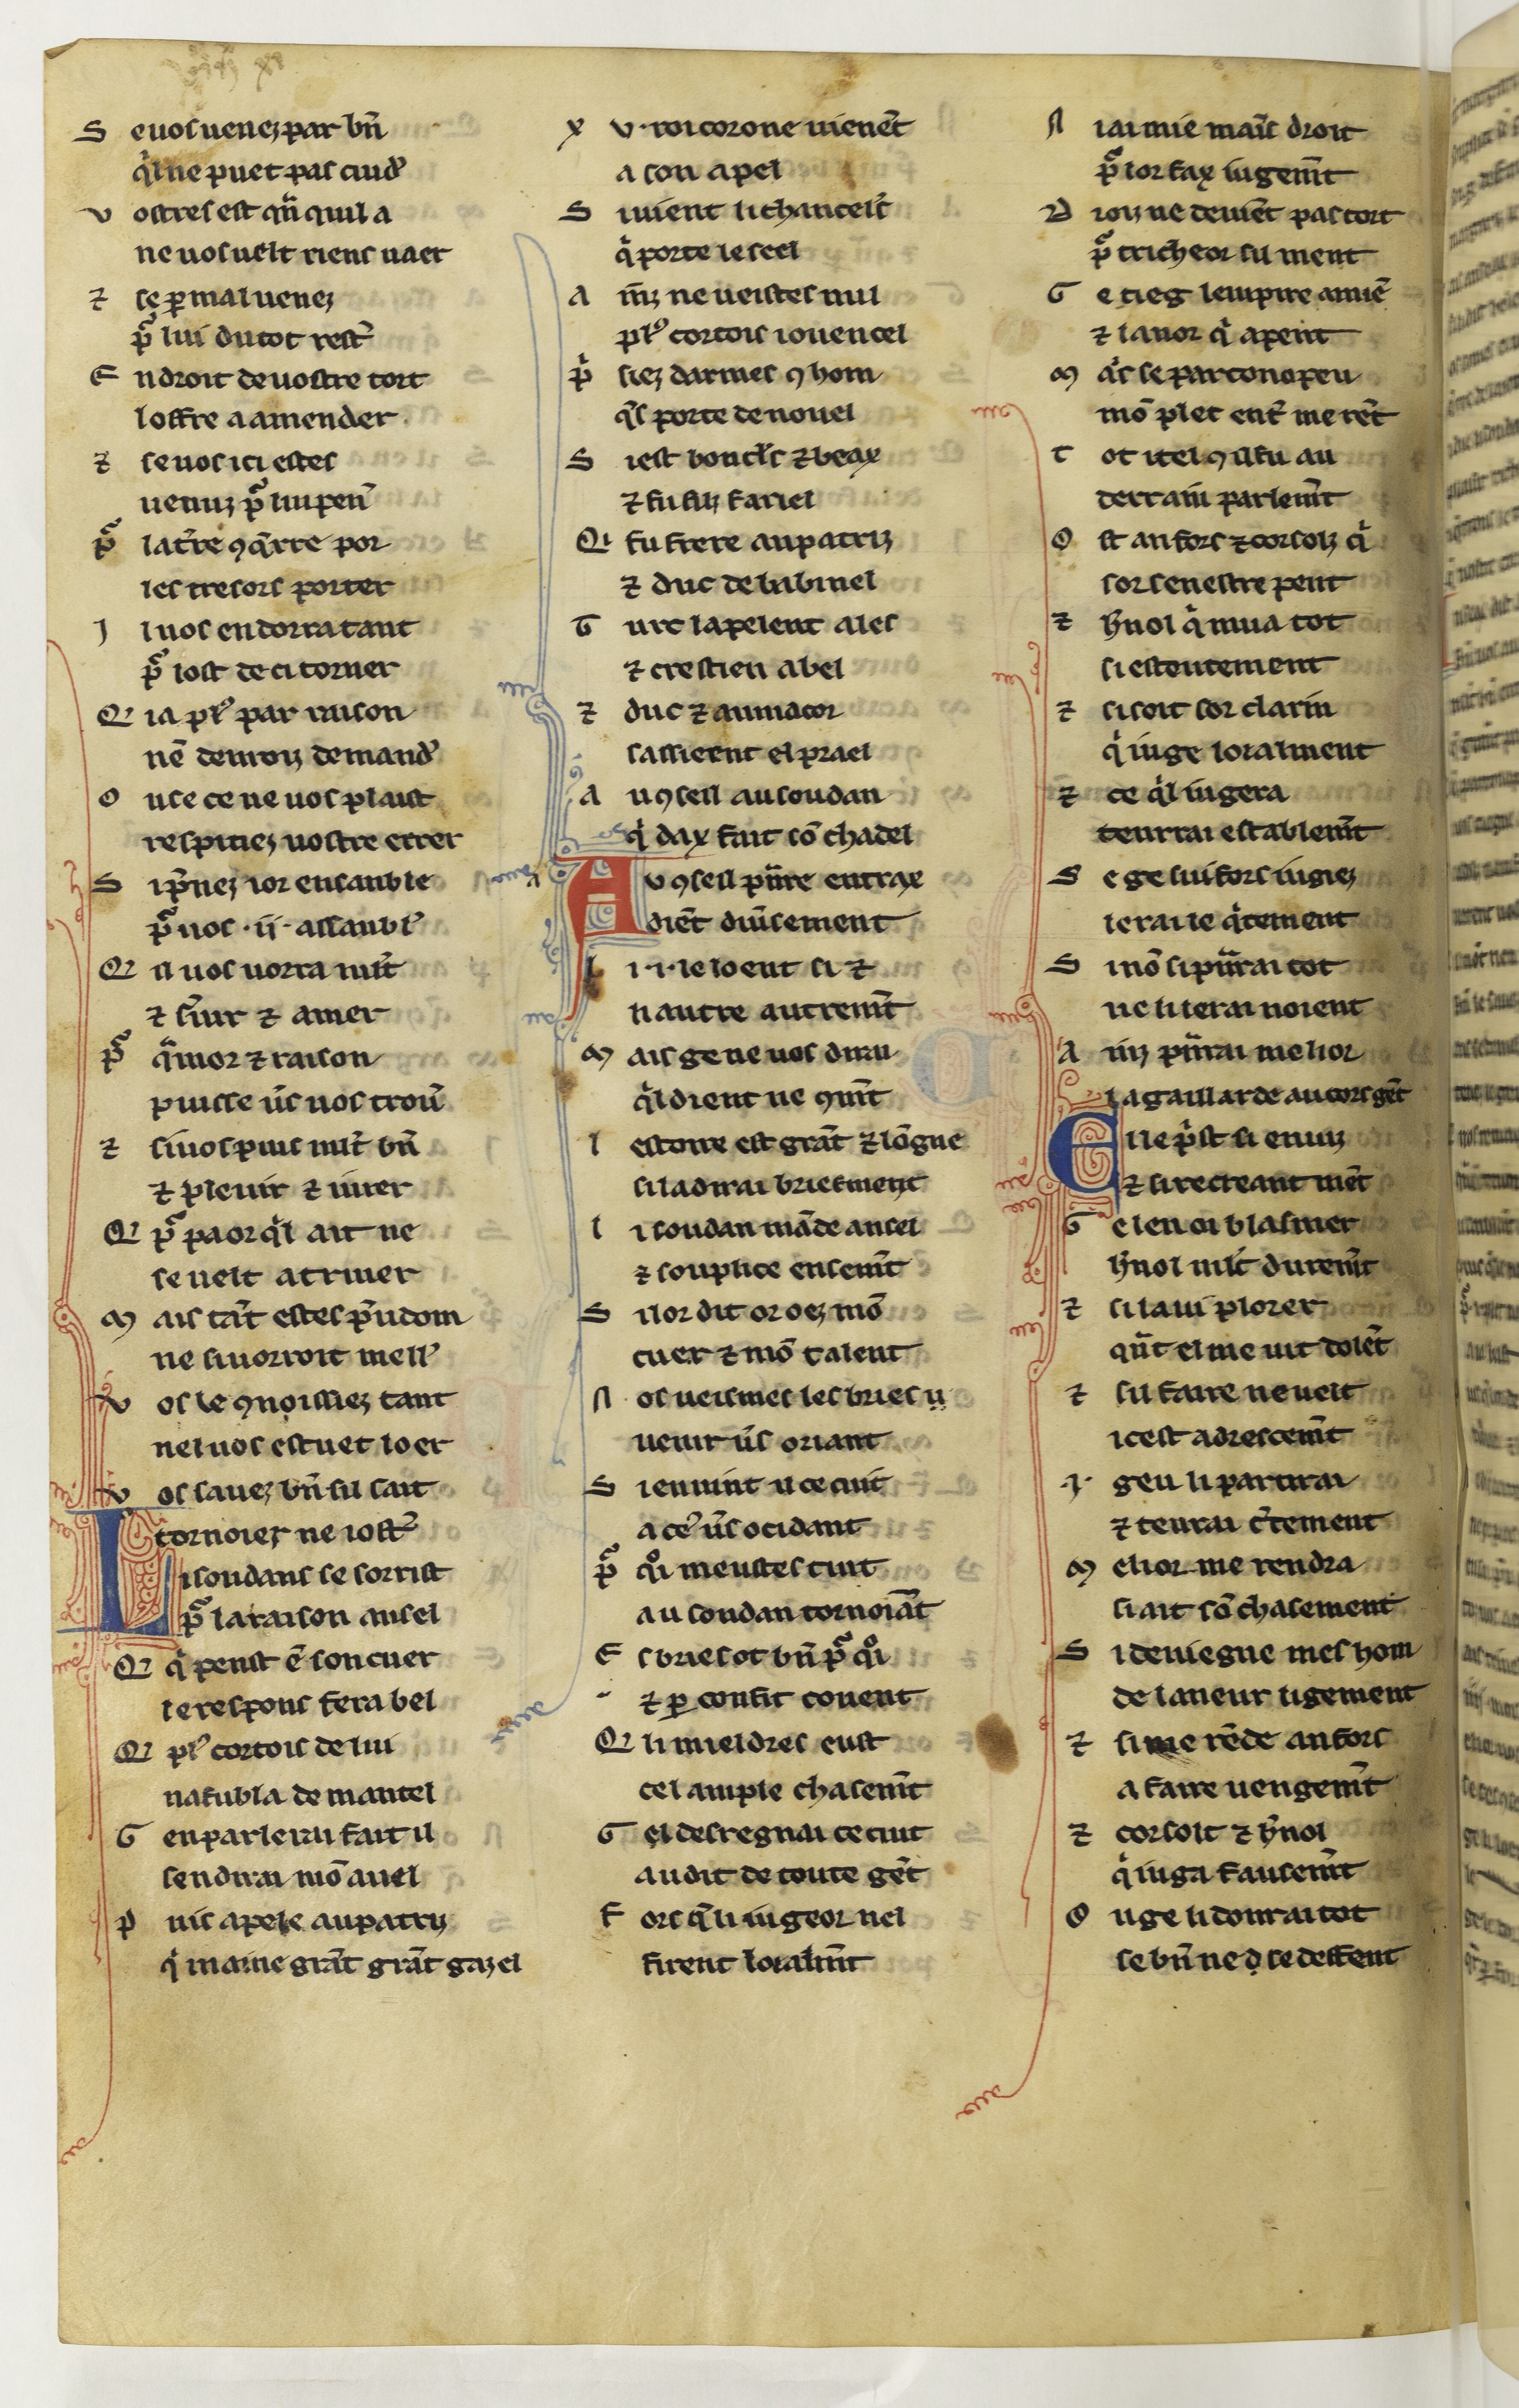 S e uos uenez par bn̄
qͥl ne puet pas ciudˀ
v ostres est qͣn quil a
ne uos uelt riens uaer
⁊ se ꝑ mal uenez
pͣ lui du tot restˀ
E n droit de uostre tort
loffre a amender
⁊ se uos ici estes
uenuz pͣ lui penˀ
pͣ la tˀre ꝯqͥrre por
les tresors porter
J l uos en dorra tant
pͣ lost de ci torner
Q ia plˀ par raison
nē deuroiz demandˀ
O u se ce ne uos plaist
respitiez uostre errer
S i pͥnez ior ensanble
pͣ uos .ii. assanblˀ
Q il uos uorra mlt̄
⁊ sˀuir ⁊ amer
pͣ qͣ mor ⁊ raison
puisse uˀs uos trouˀ
⁊ si uos puis mlt̄ bn̄
⁊ pleuir ⁊ iurer
Q pͣ paor qͥl ait ne
se uelt atriuer
M ais tāt estes pͥudom
ne si uorroit mellˀ
v os le ꝯnoissiez tant
nel uos estuet loer
v os sauez bn̄ sil sait
tornoier ne iostˀ
L i soudans se sorrist
pͣ la raison ansel
Q qͥ penst ē son cuer
le respons fera bel
Q plˀ cortois de lui
nafubla de mantel
G en parlerai fait il
sen dirai mō auel
P uis apele au patriz
qͥ maine grāt grāt gazel
X v. roi corone uienēt
a son apel
S i uient li chancelˀs
qͥ porte le seel
A miz ne ueistes nul
plˀ cortois iouencel
pͥ siez darmes ꝯ hom
qͥls porte de nouel
S iest bon clˀs ⁊ beax
⁊ fu filz fariel
Q i fu frere au patriz
⁊ duc de babinel
G urc lapelent ales
⁊ crestien abel
⁊ duc ⁊ aumacor
sassieent el prael
A u ꝯseil au soudan
qͥ dax fait sō chadel
A v ꝯseil pͥnre entrax
dient diuˀsement
L i .i. le loent si ⁊
li autre autremt̄
M ais ge ne uos dirai
qͥl dient ne ꝯmt̄
l estoire est grāt ⁊ lōgue
si la dirai briefment
l i soudan māde ansel
⁊ souplice ensemt̄
S i lor dit or oez mō
cuer ⁊ mō talent
N os ueismes les bries u
uenir uˀs oriant
S ieu uint u ce cuit
a ceˀ uˀs ocidant
pͣ qͦi meustes tuit
au soudan tornoiāt
E s bries ot bn̄ pͣ qͦi
⁊ ꝑ confit couent
Q li mieldres eust
cel ample chasemt̄
G el desregnai ce cuit
au dit de toute gēt
F ors qͥ li iugeor nel
firent loialmt̄
N i ai mie mais droit
pͣ lor fax iugemt̄
D ioiz ne deuiēt pas tort
pͣ tricheor sil ment
G e tieg lempire a miē
⁊ lanor qͥ apent
M qͥs se partonopeu
mō plet entˀ me rēt
T ot itel ꝯ il fu au
derrain parlemt̄
O st anfors ⁊ corsolz qͥ
sor senestre pent
⁊ hˀnol qͥ mua tot
si estoutement
⁊ si soit sor clarin
qͥ iuge loralment
⁊ ce qͥl iugera
tenrrai establemt̄
S e ge sui fors iugiez
ierai ie qͥtement
S i nō si pͥnrai tot
ne li lerai noient
A miz pͥnrai melior
la gaillarde au cors gēt
E lle pͥst si enuiz
⁊ si recreant mēt
G e len oi blasmer
hˀnol mlt̄ duremt̄
⁊ si la ui plorer
qͣnt el me uit dolēt
⁊ sil faire ne uelt
icest adrescemt̄
.J. geu li partirai
⁊ tenrai cˀtement
M elior me rendra
si ait sō chasement
S i deuiegne mes hom
de laneur ligement
⁊ si me rēde anfors
a faire uengemt̄
⁊ corsolt ⁊ hˀnol
qͥ iuga fausemt̄
O u ge li donrai tot
se bn̄ ne se deffent